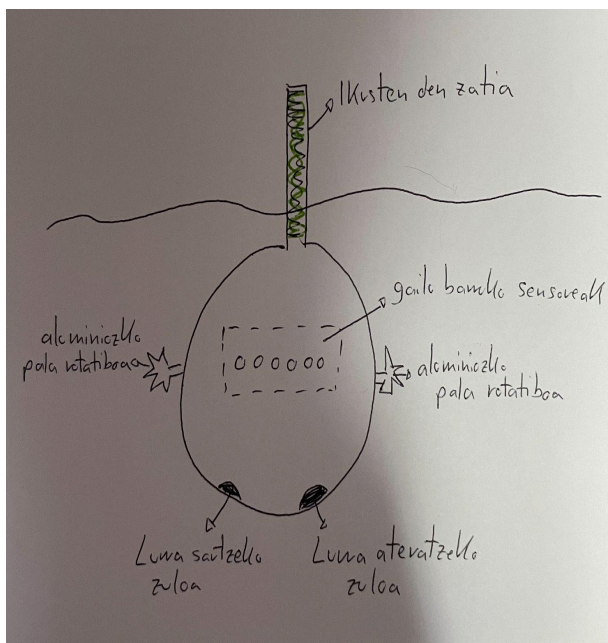 Ikusten den zatia
gailu barruko sensoreak
aluminiozko
pala rotatiboa
aluminiozko
pala rotatiboa
Lurra sartzeko
zuloa
Lurra ateratzeko
zuloa